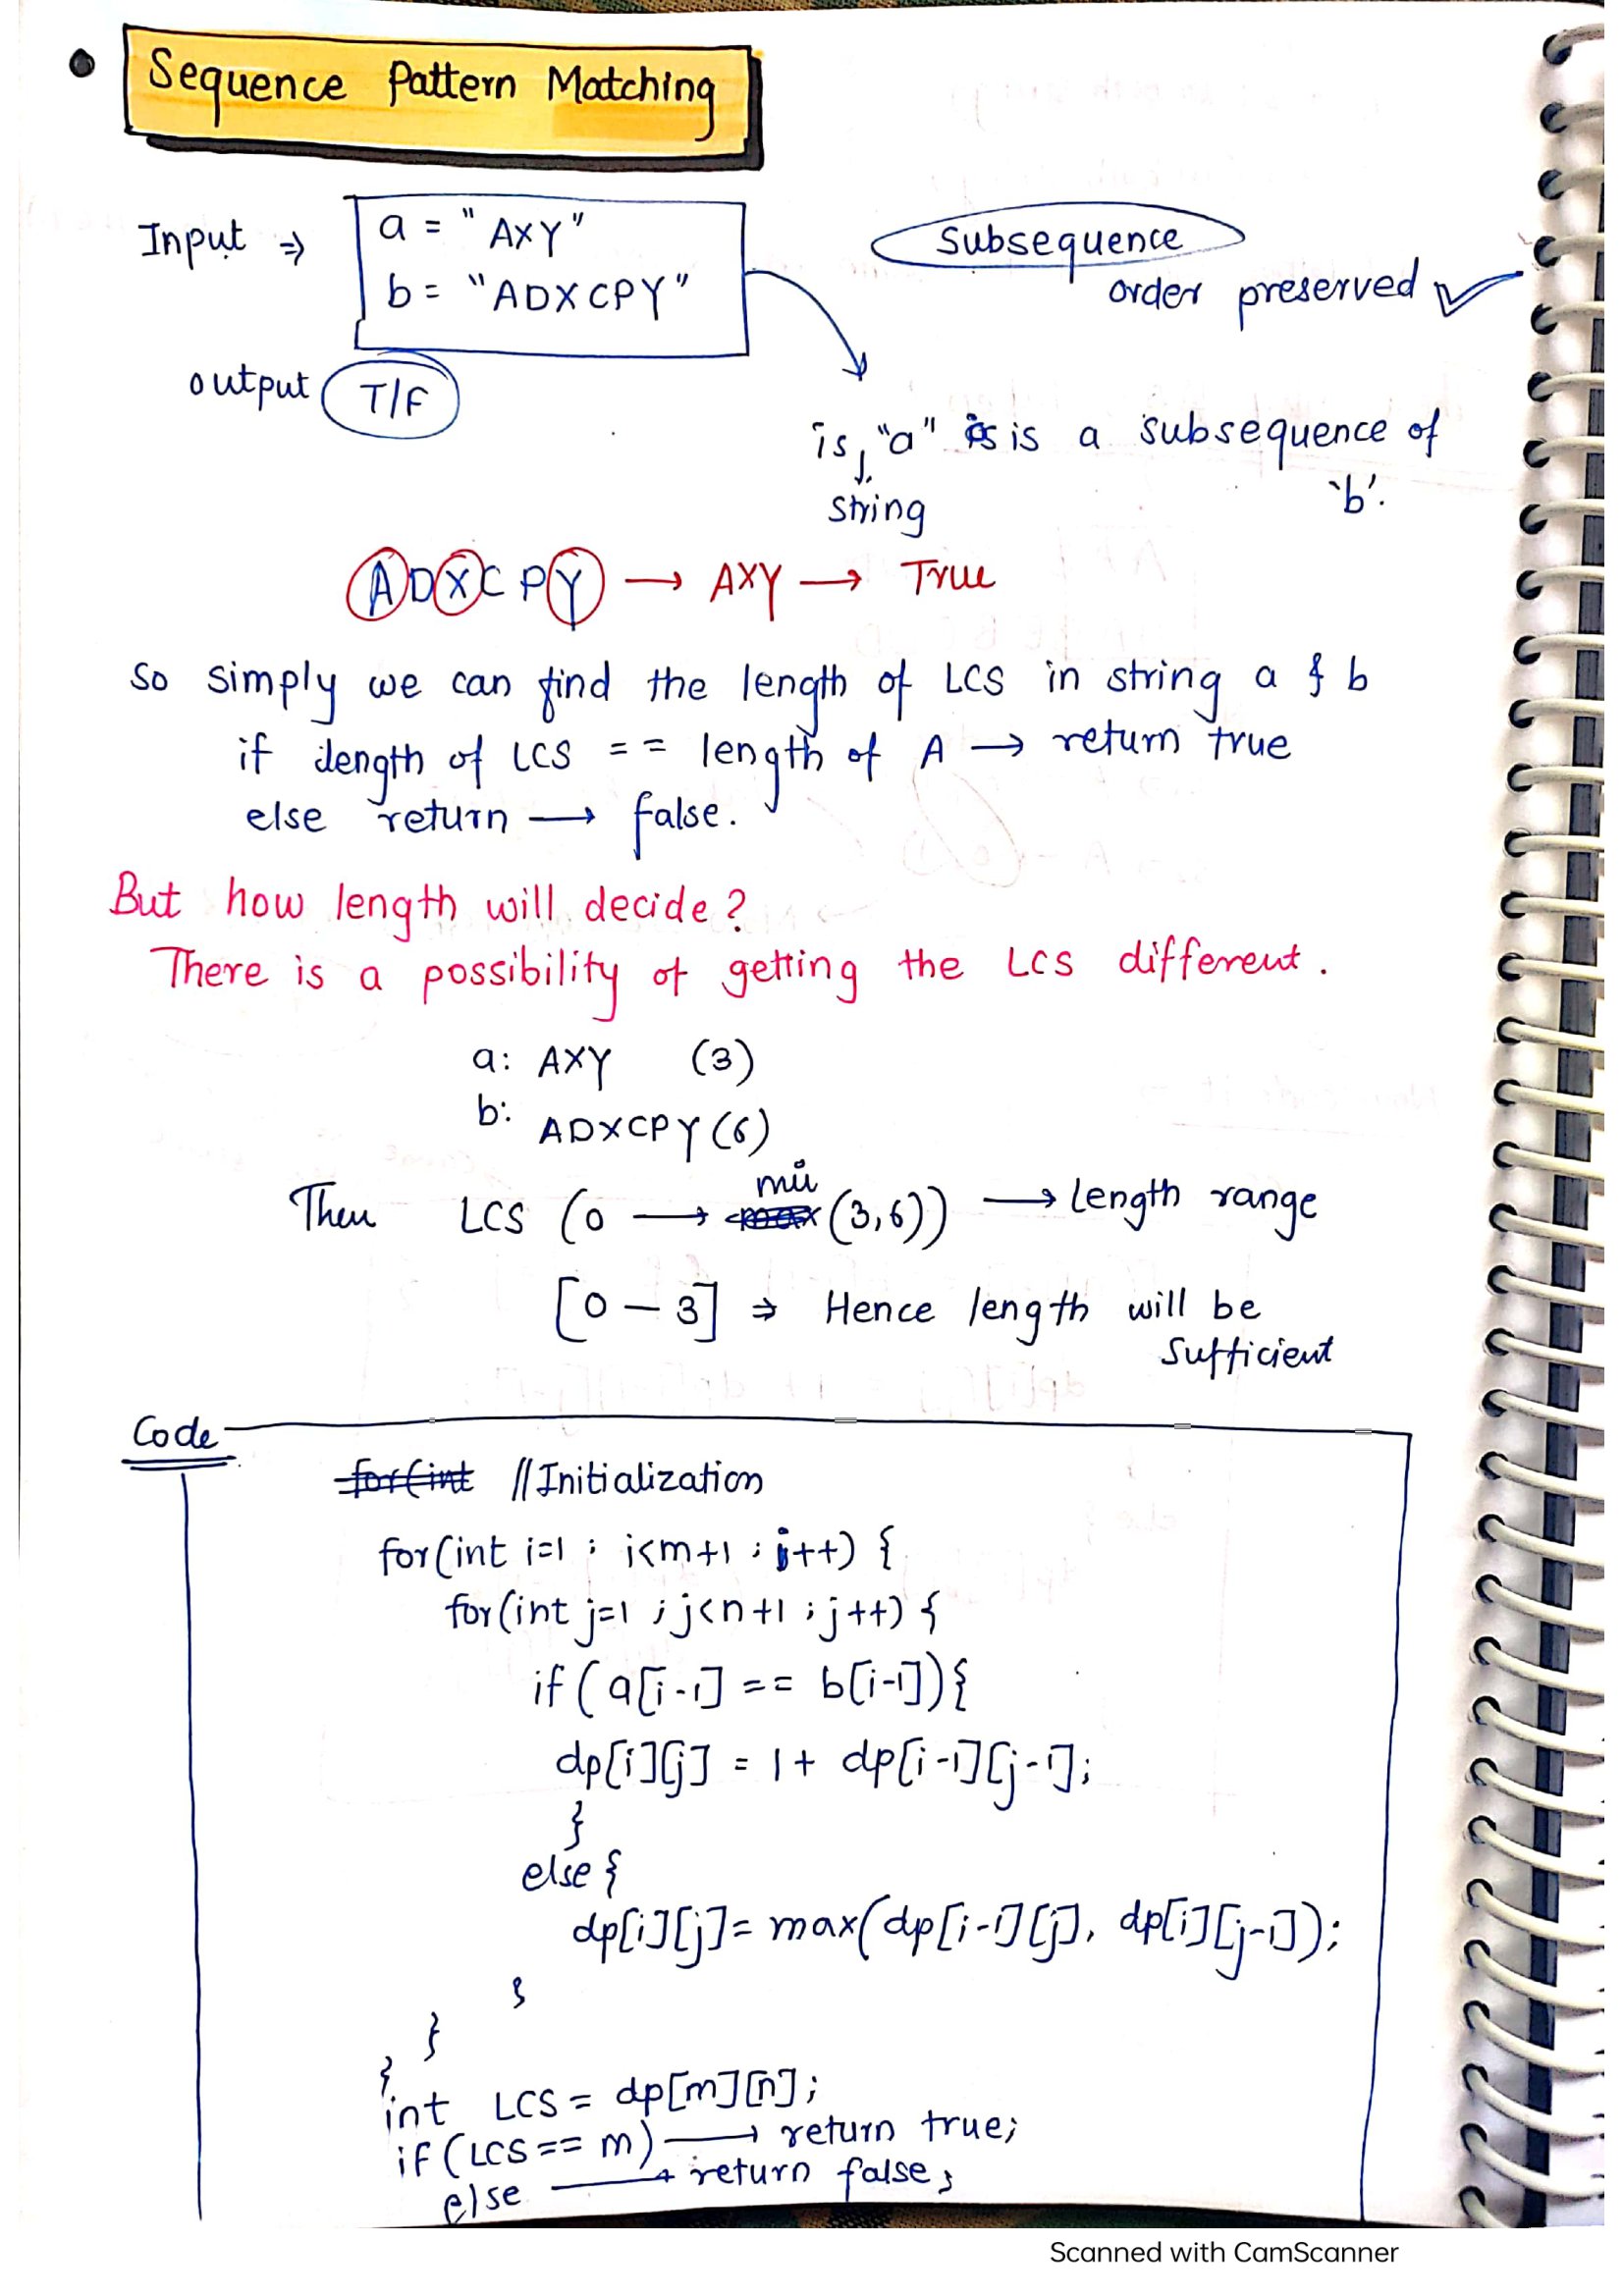 Sequence Pattern Matching
Input ⇒ a = "AXY"
b = "ADXCPY"
Subsequence
order preserved ✓
output T/F
is "a" is a subsequence of
string
'b'.
ADXCPY → AXY → True
So simply we can find the length of LCS in string a & b
if length of LCS == length of A → return true
else return → false.
But how length will decide?
There is a possibility of getting the LCS different.
a: AXY (3)
b: ADXCPY (6)
min
Then LCS (0 → max (3,6)) → Length range
[0 – 3] ⇒ Hence length will be
sufficient
Code
for(int //Initialization
for(int i=1 ; i<m+1 ; i++) {
for(int j=1 ; j<n+1 ; j++) {
if( a[i-1] == b[i-1]){
dp[i][j] = 1 + dp[i-1][j-1];
}
else {
dp[i][j] = max(dp[i-1][j], dp[i][j-1]);
}
}
}
int LCS = dp[m][n];
if(LCS == m) → return true;
else → return false;
Scanned with CamScanner